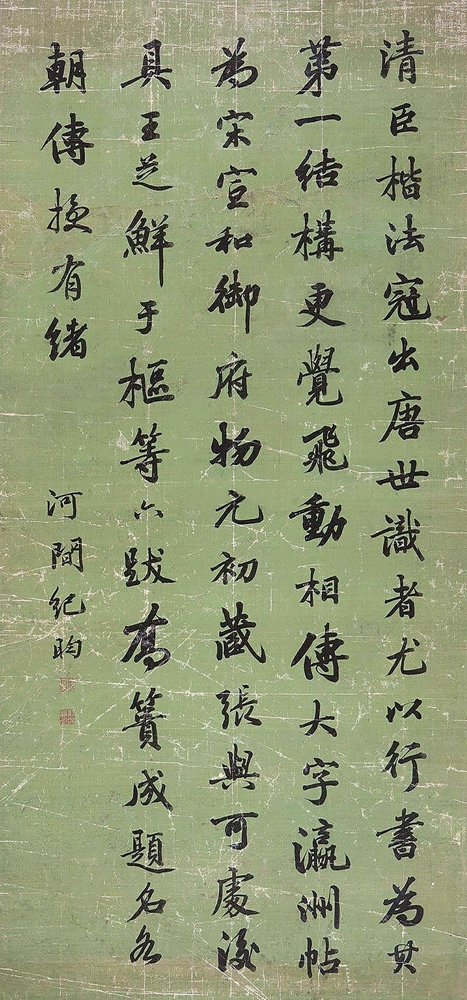 清臣楷法冠出唐世識者尤以行書為其
第一結構更覺飛動相傳大字瀛洲帖
為宋宣和御府物元初藏張與可處後
具王芝鮮于樞等六跋喬簣成題名各
朝傳授有緒
河間紀昀